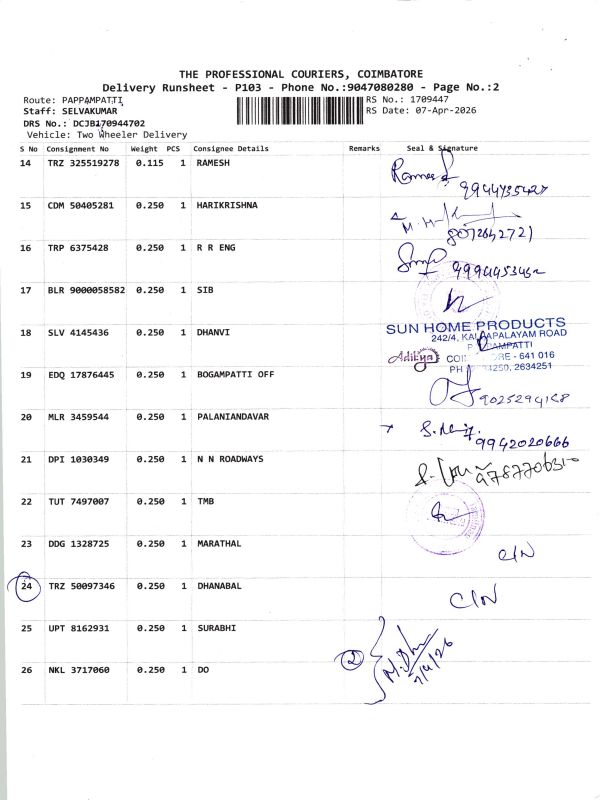 THE PROFESSIONAL COURIERS, COIMBATORE
Delivery Runsheet - P103 - Phone No.:9047080280 - Page No.:2
Route: PAPPAMPATTI RS No.: 1709447
Staff: SELVAKUMAR RS Date: 07-Apr-2026
DRS No.: DCJB1709944702
Vehicle: Two Wheeler Delivery
S No Consignment No Weight PCS Consignee Details Remarks Seal & Signature
14 TRZ 325519278 0.115 1 RAMESH
15 CDM 50405281 0.250 1 HARIKRISHNA
16 TRP 6375428 0.250 1 R R ENG
17 BLR 9000058582 0.250 1 SIB
18 SLV 4145436 0.250 1 DHANVI
SUN HOME PRODUCTS
242/4, KALAPALAYAM ROAD
Aditya
641 016
2634251
19 EDQ 17876445 0.250 1 BOGAMPATTI OFF
9025294168
20 MLR 3459544 0.250 1 PALANIANDAVAR
9942020666
21 DPI 1030349 0.250 1 N N ROADWAYS
22 TUT 7497007 0.250 1 TMB
23 DDG 1328725 0.250 1 MARATHAL C/N
24 TRZ 50097346 0.250 1 DHANABAL C/N
25 UPT 8162931 0.250 1 SURABHI
2
7/4/26
26 NKL 3717060 0.250 1 DO